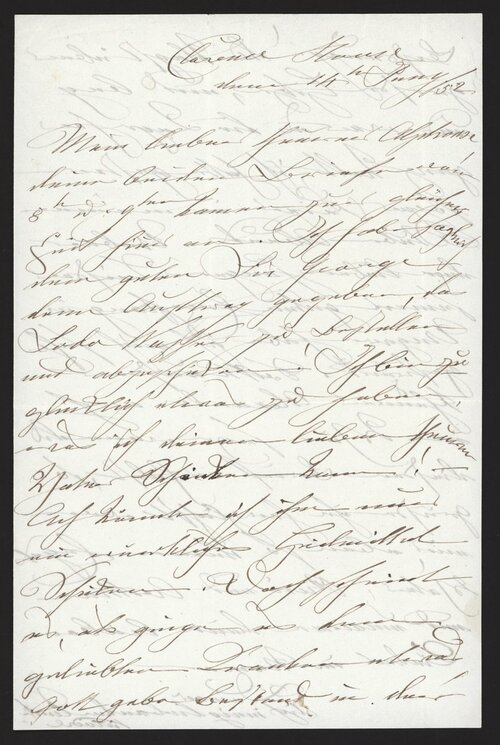 Clarence House
den 14th Juny /52
Mein lieber theurer Alphons!
deine beiden Briefe vom
8th u 9ten kamen zur gleichen
Zeit hier an. Ich habe sogleich
dem guten Sir George
den Auftrag gegeben, das
Soda Wasser zu bestellen
und abzuschicken! Ich bin zu
glücklich etwas zu haben,
was ich deinem lieben theuren
Vater schicken kann! –
Ach könnte ich ihm nur
ein wirkliches Heilmittel
schicken. Doch scheint
es, als ginge es dem
geliebten Kranken etwas
Gott gebe Bestand in der